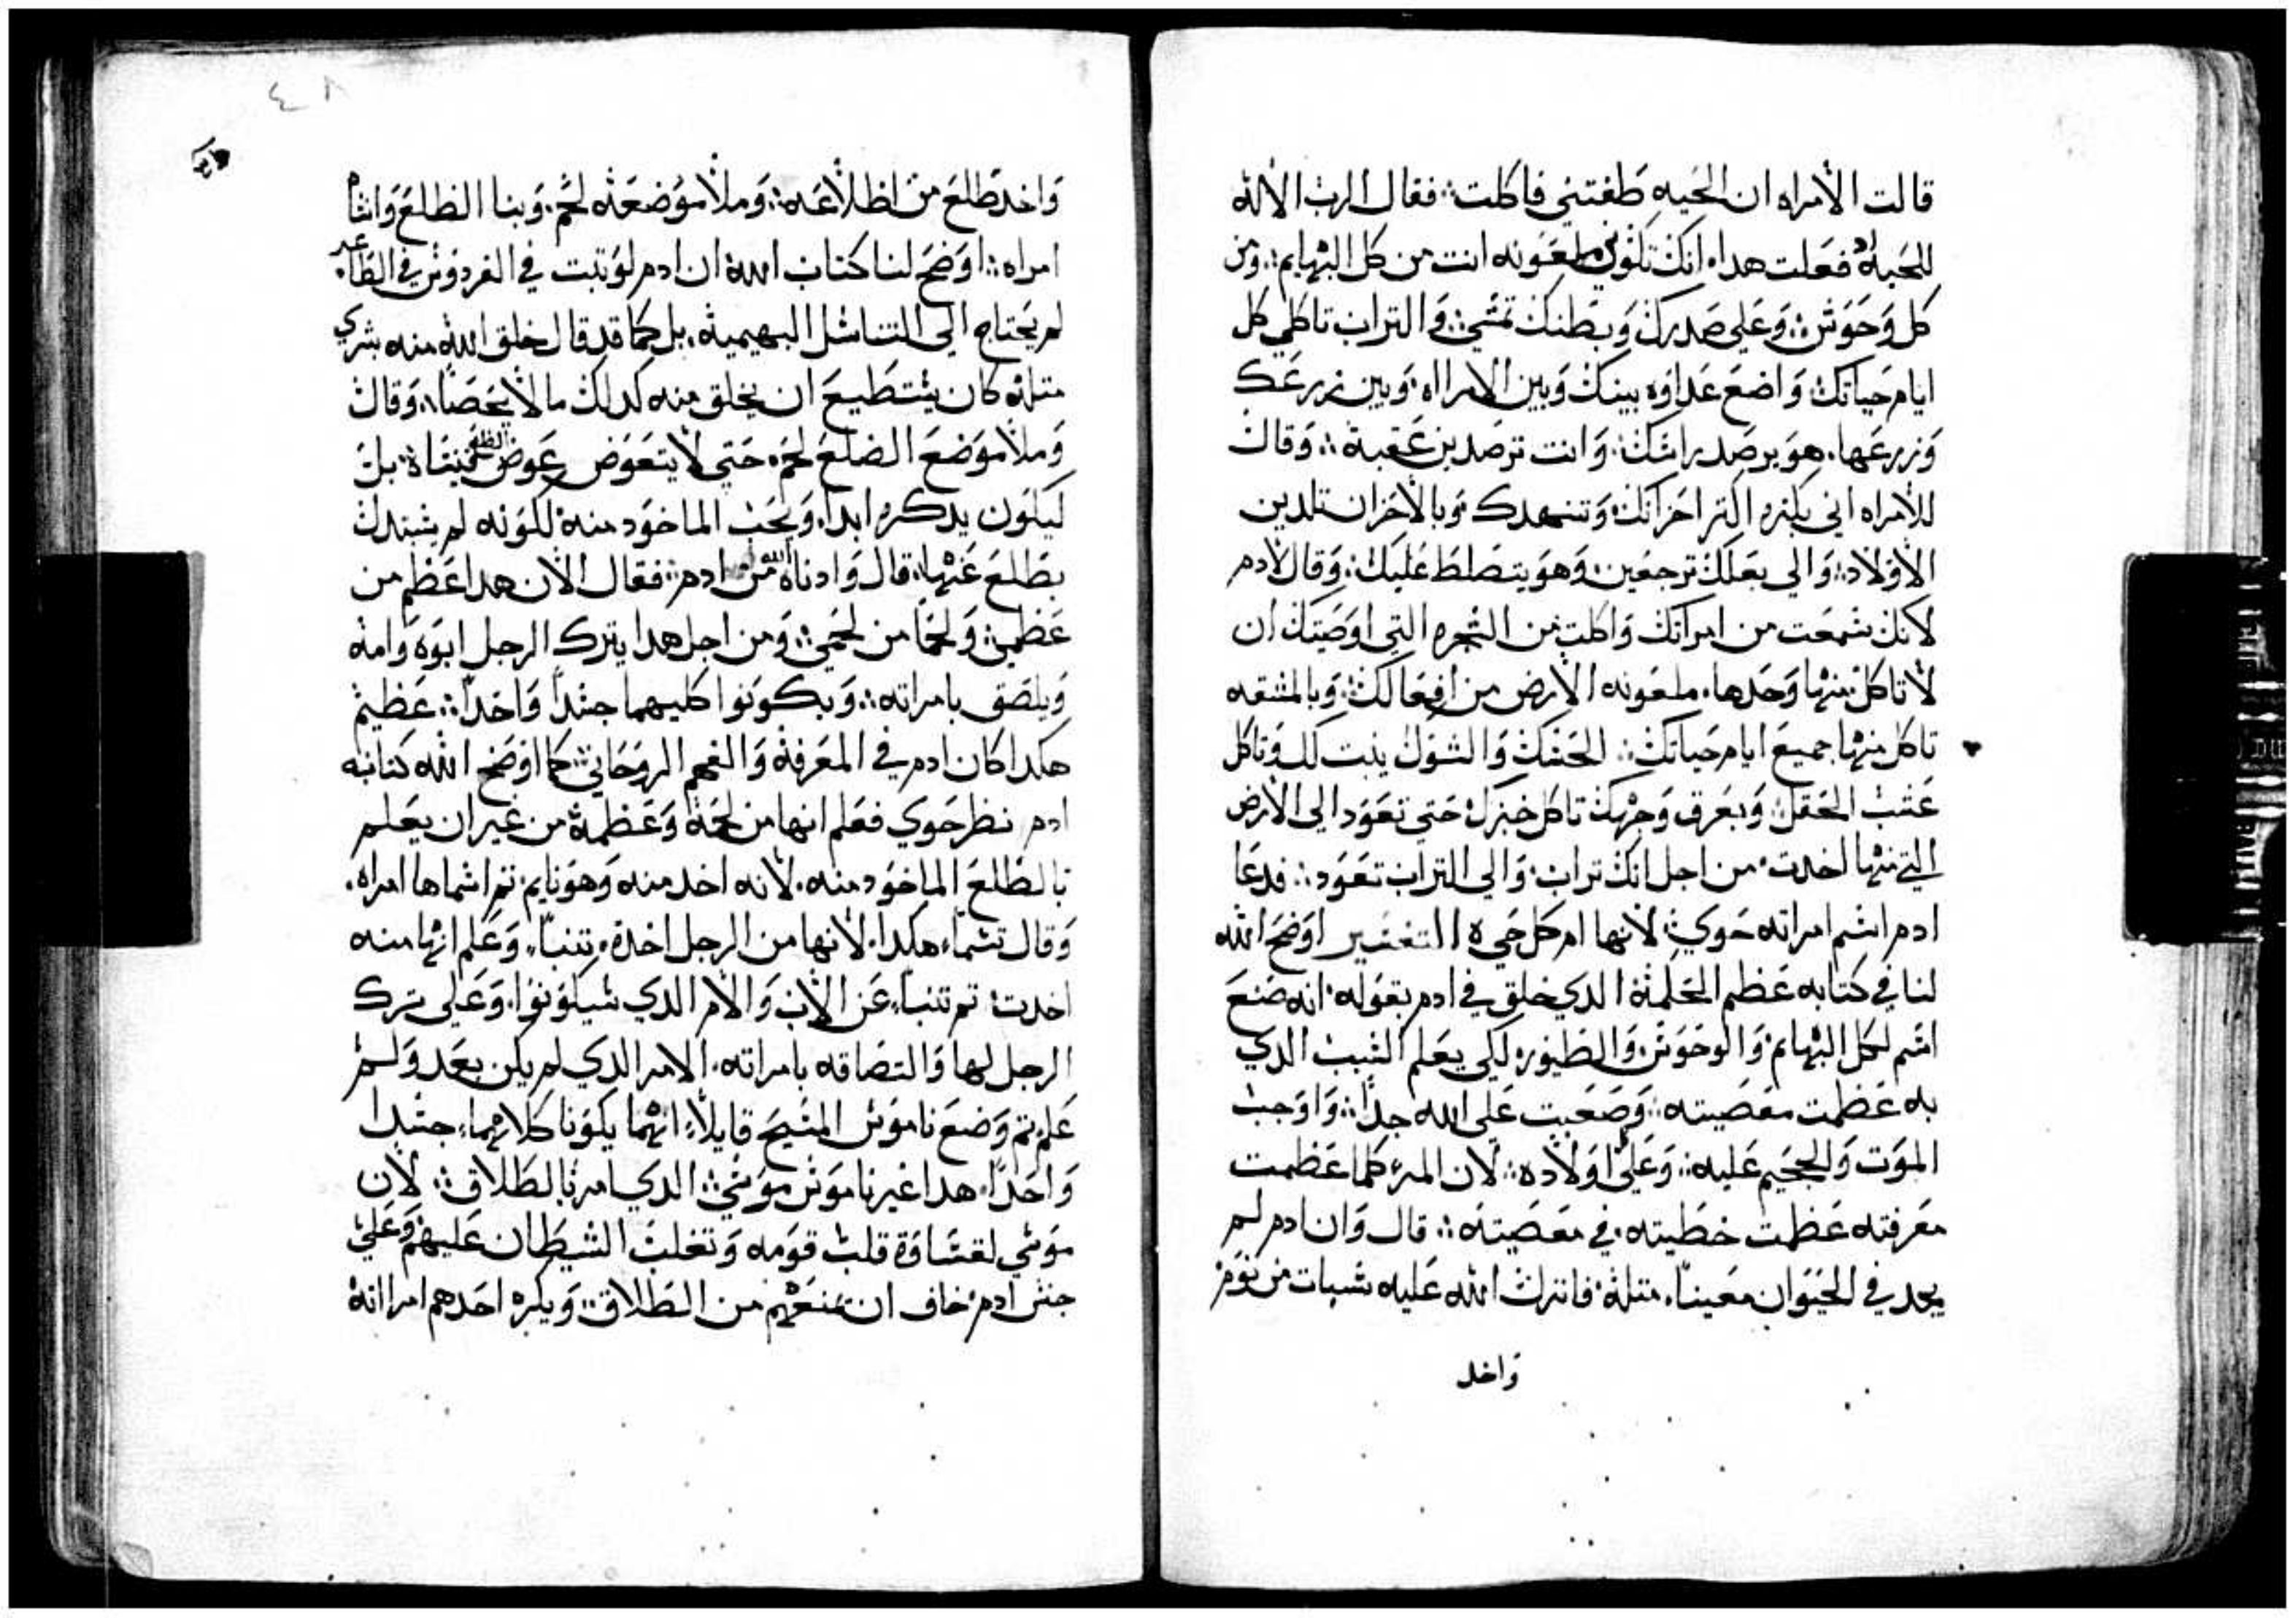 قالت الامراه ان الحيه طغتني فاكلت فقال الرب الاله
للحيه اد فعلت هدا انك تكوني ملعونه انت من كل البهايم ومن
كل وحوش وعلي صدرك وبطنك تمشي والتراب تاكلي كل
ايام حياتك واضع عداوه بينك وبين الامراه وبين زرعك
وزرعها هو يرصد راسك وانت ترصدين عقبه وقال
للامراه اني بكثره اكتر احزانك وتنهدك وبالاحزان تلدين
الاولاد والي بعلك ترجعين وهو يتصلط عليك وقال لادم
لانك سمعت من امراتك واكلت من الشجره التي اوصيتك ان
لا تاكل منها وحدها ملعونه الارض من افعالك وبالمشقه
تاكل منها جميع ايام حياتك الحسك والشوك ينبت لك وتاكل
عشب الحقل وبعرق وجهك تاكل خبزك حتي تعود الي الارض
التي منها اخدت من اجل انك تراب والي التراب تعود فدعا
ادم اسم امراته حوي لانها ام كل حي ه التفسير اوضح الله
لنا في كتابه عظم الحكمة الدي خلق في ادم بقوله انه صنع
اسم لكل البهايم والوحوش والطيور لكي يعلم السبب الدي
به عظمت معصيته وصعبت علي الله جدا واوجب
الموت والجحيم عليه وعلي اولاده لان المرء كلما عظمت
معرفته عظمت خطيته في معصيته قال وان ادم لم
يجد في الحيوان معينا متله فانزل الله عليه سبات من نوم
واخد
٤٨
واخد ظلع من اظلاعه وملا موضعه لحم وبنا الظلع وانشا
امراه اوضح لنا كتاب الله ان ادم لو تبت في الفردوس في الطاعه
لم يحتاج الي التناسل البهيمية بل كما قد قال خلق الله منه بشري
متله كان يستطيع ان يخلق منه كدلك ما لا يحصا وقال
وملا موضع الضلع لحم حتي لا يتعوض عوض الظلع فينساه بل
ليكون يدكره ابدا ويحب الماخود منه لكونه لم يستبدل
بظلع عنها قال وادناها الله من ادم فقال الان هدا عظم من
عظمي ولحما من لحمي ومن اجل هدا يترك الرجل ابوه وامه
ويلصق بامراته ويكونوا كليهما جسدا واحدا عظيم
هكدا كان ادم في المعرفة والفهم الروحاني كما اوضح الله كتابه
ادم نظر حوي فعلم انها من لحمه وعظمه من غير ان يعلم
بالظلع الماخود منه لانه اخد منه وهو نايم تم اسماها امراه
وقال تسما هكدا لانها من الرجل اخدة تنبا وعلم انها منه
اخدت تم تنبا عن الاب والام الدي سيكونوا وعلي ترك
الرجل لها والتصاقه بامراته الامر الدي لم يكن بعد ولم
علم تم وضع ناموس المسيح قايلا انهما يكونا كلاهما جسدا
واحدا هدا غير ناموس موسي الدي امر بالطلاق لان
موسي لقساوة قلب قومه وتغلب الشيطان عليهم وعلي
جنس ادم خاف ان يمنعهم من الطلاق ويكره احدهم امراته